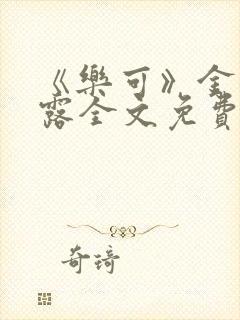 《樂可》金
露全文免費
奇琦